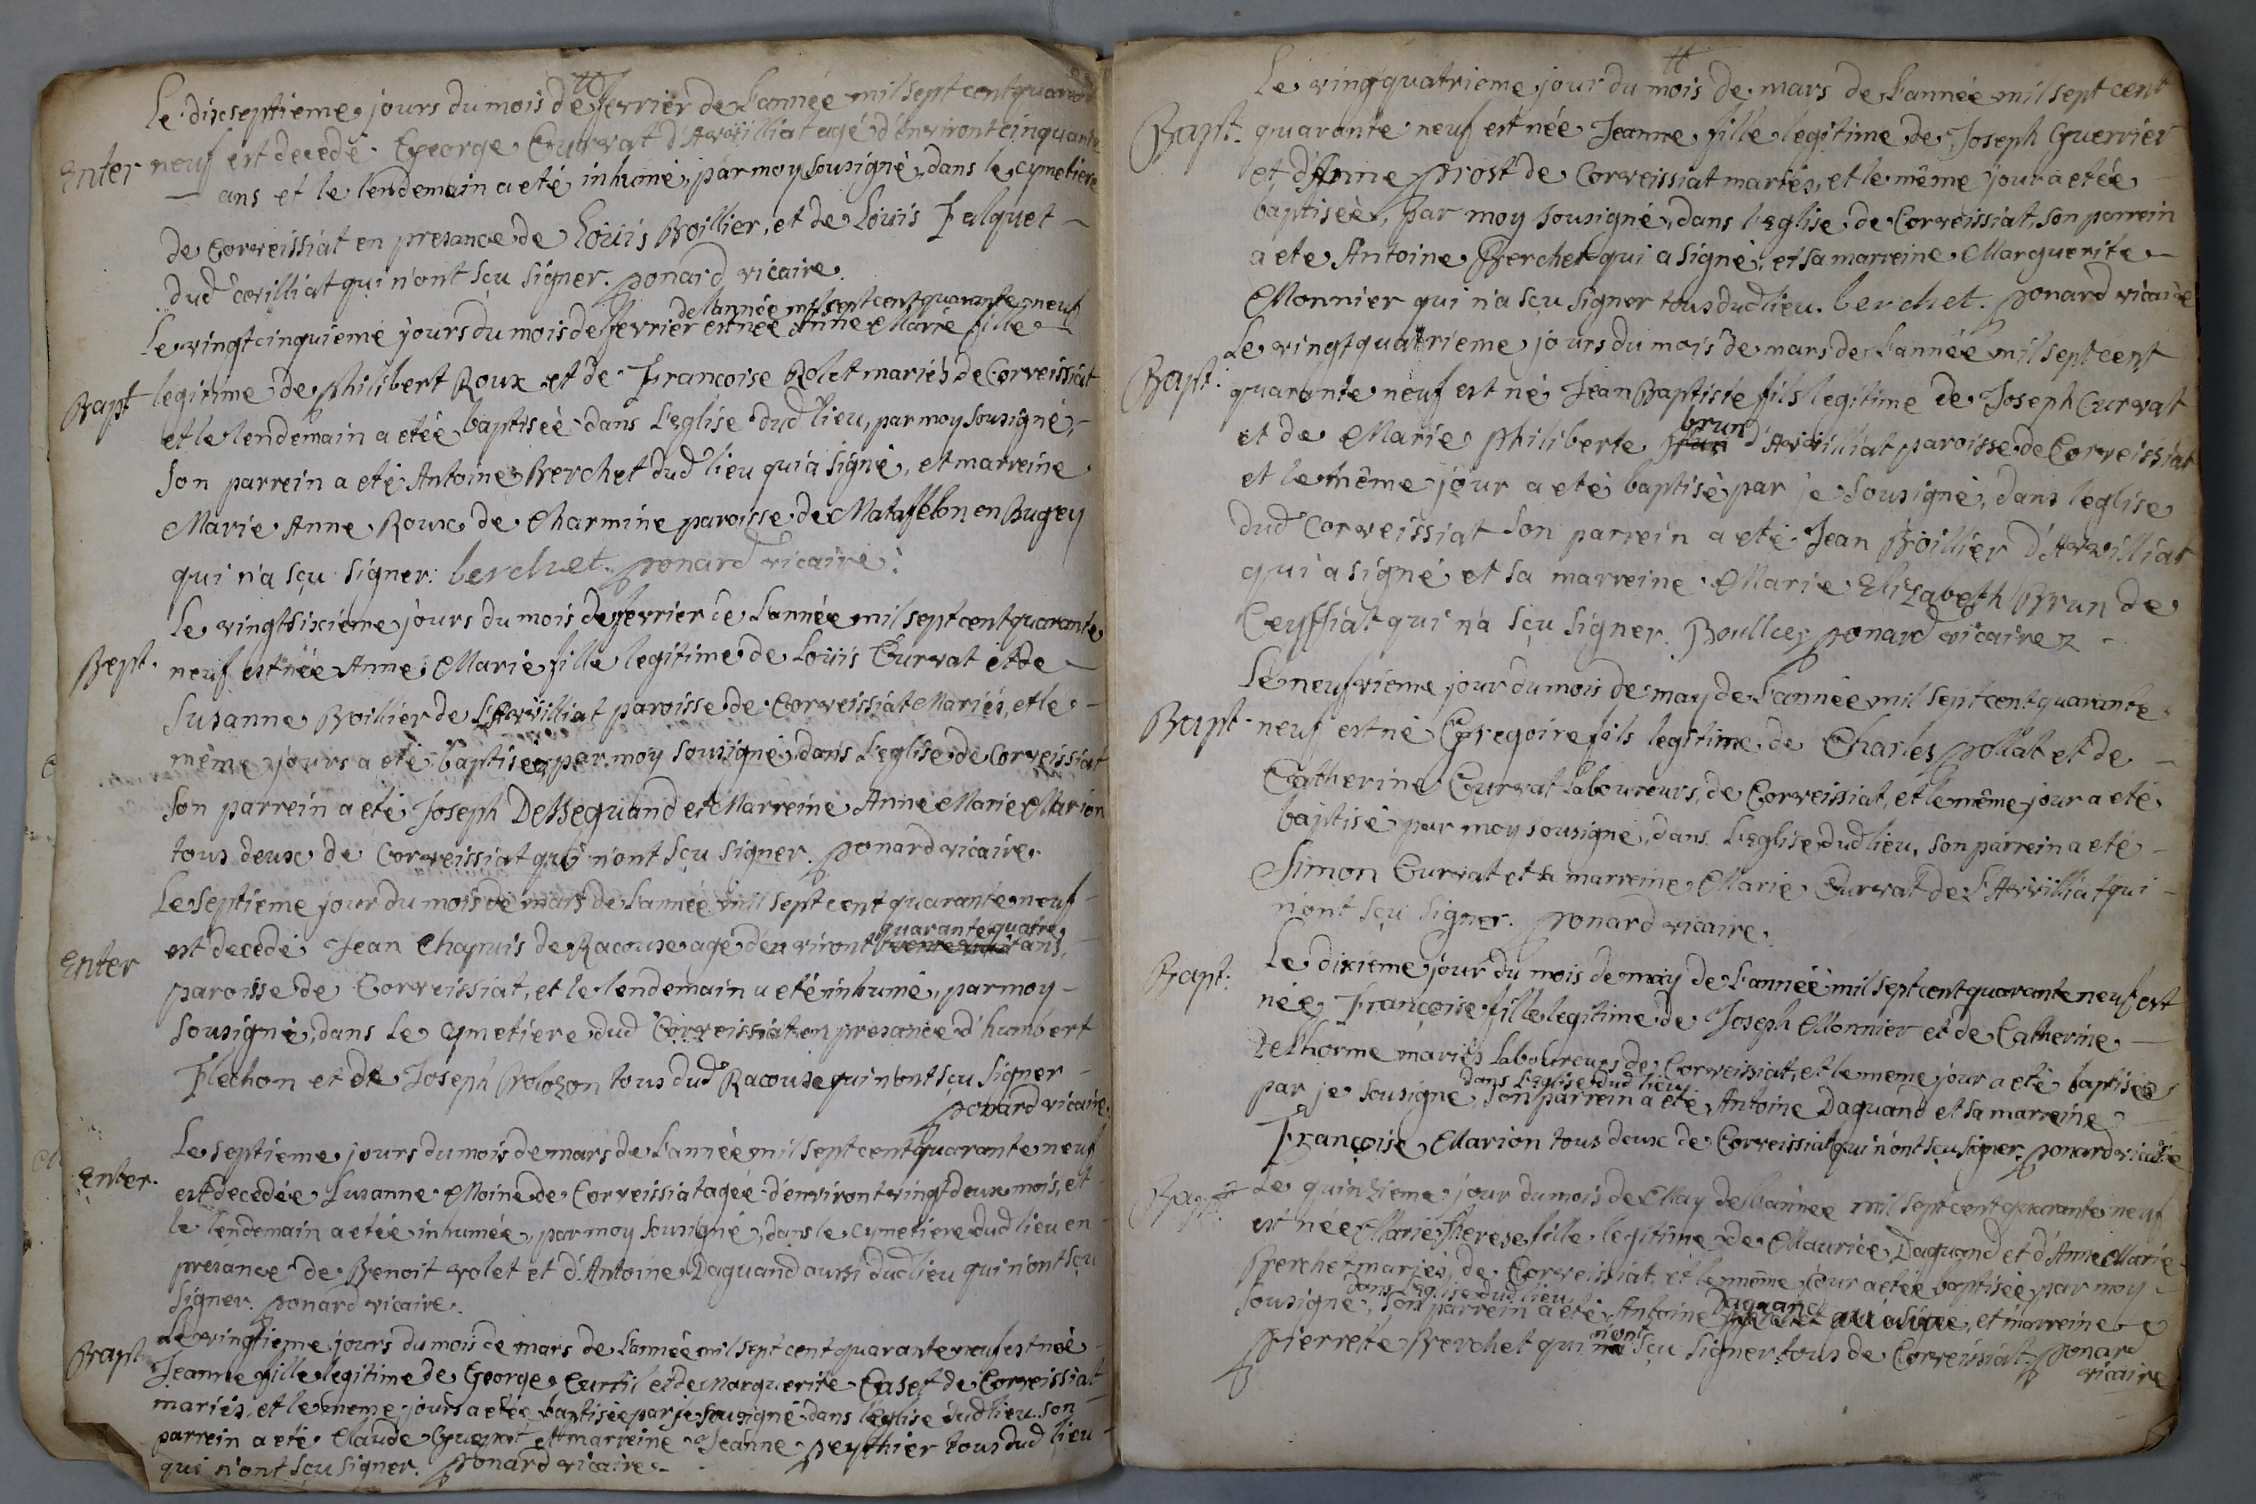 Le dixseptieme jours du mois de fevrier de L'année mil sept cent quarante
Enter neuf est decedé George Curvat d'Arvilliat agé d'environt cinquante
ans et le lendemain a eté inhumé, par moy sousigné, dans le cymetiere
de Corveissiat en presance de Loüis Boillier, et de Loüis Falquet
dud Corilliat qui n'ont sçu signer. ponard vicaire.
de lannée mil sept cent quarante neuf
Le vingtcinquieme jours du mois de fevrier est née Anne Marie fille
legitime de philibert Roux et de Françoise Rolet mariés de Corveissiat
Bapt
et le lendemain a etée baptiseè dans L'eglise dud lieu, par moy sousigné,
Son parrein a eté Antoine Berchet dud lieu qui a signé, et marreine
Marie Anne Roux de Charmine paroisse de Matafelon en Bugey
qui n'a sçu signer. berchet. ponard vicaire.
Le vingtsixieme jours du mois de fevrier de L'année mil sept cent quarante
Bept. neuf est née Anne Marie fille legitime de Loüis Curvat et de
Susanne Boillier de L'Arvilliat paroisse de Corveissiat Mariés, et le
même jours a eté baptiseé, par moy sousigné, dans L'eglise de Corveissiat
Son parrein a eté Joseph Debbequand et Marreine Anne Marie Marion
tous deux de Corveissiat qui n'ont sçu signer. ponard vicaire.
Le septieme jour du mois de mars de L'année mil sept cent quarante neuf
quarante quatre
Enter est decedé Jean Chapuis de Racouse agé d'environt ans,
paroisse de Corveissiat, et le lendemain a eté inhumé, par moy
sousigné, dans Le Cymetiere dud Corveissiat en presance d'humbert
Flechon et de Joseph Brolozon tous dud Racouse qui n'ont sçu signer
ponard vicaire.
Le septieme jours du mois de mars de L'année mil sept cent quarante neuf
Enter. est decedée Susanne Moine de Corveissiat agée d'environt vingt deux mois, et
le lendemain a etée inhumée, par moy sousigné, dans le cymetiere dud lieu en
presance de Benoit volet et d'Antoine Daguand aussi dud lieu qui n'ont sçu
signer. ponard vicaire.
Le vingtieme jours du mois de mars de L'année mil sept cent quarante neuf est née
Bapt Jeanne fille legitime de George Curtil et de Marguerite Caset de Corveissiat
mariés, et le meme jours a etée baptisée par je sousigné dans leglise dud lieu. son
parrein a eté Claude et marreine Jeanne peythier tous dud lieu
qui n'ont sçu signer. ponard vicaire.
Le vingquatrieme jour du mois de mars de L'année mil sept cent
Bapt. quarante neuf est née Jeanne fille legitime de Joseph Guerrier
et d'Anne prost de Corveissiat mariés, et le même jour a etée
baptiseè, par moy sousigné, dans l'eglise de Corveissiat, son parrein
a ete Antoine Berchet qui a signé, et sa marreine Marguerite
Monnier qui n'a sçu signer tous dud lieu. berchet. ponard vicaire
Le vingtquatrieme jours du mois de mars de L'année mil sept cent
Bapt. quarante neuf est né Jean Baptiste fils legitime de Joseph Curvat
brun
et de Marie philiberte d'Arvilliat paroisse de Corveissiat
et le même jour a eté baptisé par je sousigné, dans leglise
dud Corveissiat son parrein a eté Jean Boillier d'Arvilliat
qui a signé et sa marreine Marie Elizabeth Brun de
Ceyssiat qui n'a sçu signer. Boullier ponard vicaire
Le neufvieme jour du mois de may de L'année mil sept cent quarante
Bapt. neuf est né Gregoire fils legitime de Charles pollat et de
Catherine Curvat Laboureurs, de Corveissiat, et le même jour a eté
baptisé par moy sousigné, dans L'eglise dud lieu, son parrein a eté
Simon Curvat et sa marreine Marie Curvat de L'Arvilliat qui
n'ont sçu signer. ponard vicaire.
Bapt. Le dixieme jour du mois de may de L'année mil sept cent quarante neuf est
née Françoise fille legitime de Joseph Monnier et de Catherine
Delhorme mariés Laboureurs de Corveissiat, et le meme jour a eté baptisée
dans L'eglise dud lieu
par je sousigné, son parrein a eté Antoine Daguand et sa marreine
Françoise Marion tous deux de Corveissiat qui n'ont sçu signer. ponard vicaire
Bapt. Le quinzieme jour du mois de May de L'année mil sept cent quarante neuf
est née Marie Therese fille legitime de Maurice Daguand et d'Anne Marie
Berchet mariés, de Corveissiat, et le même jour a etée baptisée par moy
dans l'eglise dud lieu
Daguand
sousigné, son parrein a eté Antoine et marreine
n'ont
pierrete Berchet qui sçu signer tous de Corveissiat. ponard
vicaire